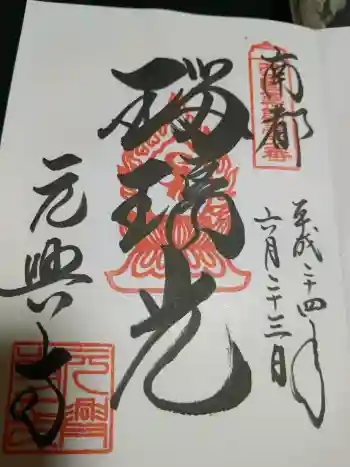 南都
平成二十四年
六月二十三日
瑠璃光
元興寺
元興